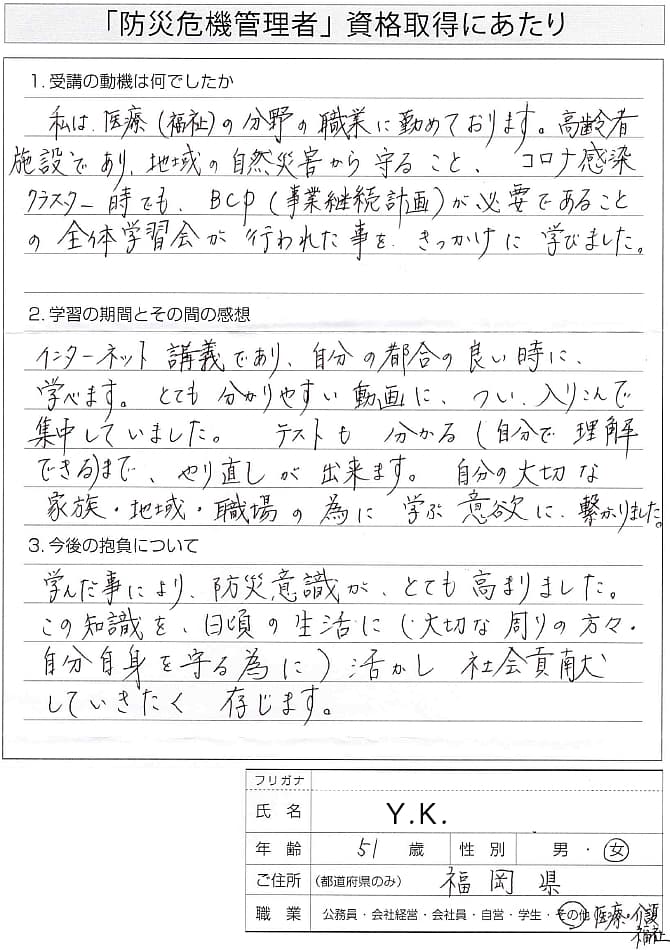 「防災危機管理者」資格取得にあたり
1. 受講の動機は何でしたか
私は、医療（福祉）の分野の職業に勤めております。高齢者
施設であり、地域の自然災害から守ること、コロナ感染
クラスター時でも、BCP（事業継続計画）が必要であること
の全体学習会が行われた事を、きっかけに学びました。
2. 学習の期間とその間の感想
インターネット講義であり、自分の都合の良い時に、
学べます。とても分かりやすい動画に、つい、入りこんで
集中していました。テストも分かる（自分で理解
できる)まで、やり直しが出来ます。自分の大切な
家族・地域・職場の為に学ぶ意欲に、繋がりました。
3. 今後の抱負について
学んだ事により、防災意識が、とても高まりました。
この知識を、日頃の生活に（大切な周りの方々・
自分自身を守る為に）活かし社会貢献
していきたく存じます。
フリガナ
氏名 Y.K.
年齢 51 歳 性別 男・女
ご住所 （都道府県のみ） 福岡県
職業 公務員・会社経営・会社員・自営・学生・その他 医療・介護
福祉